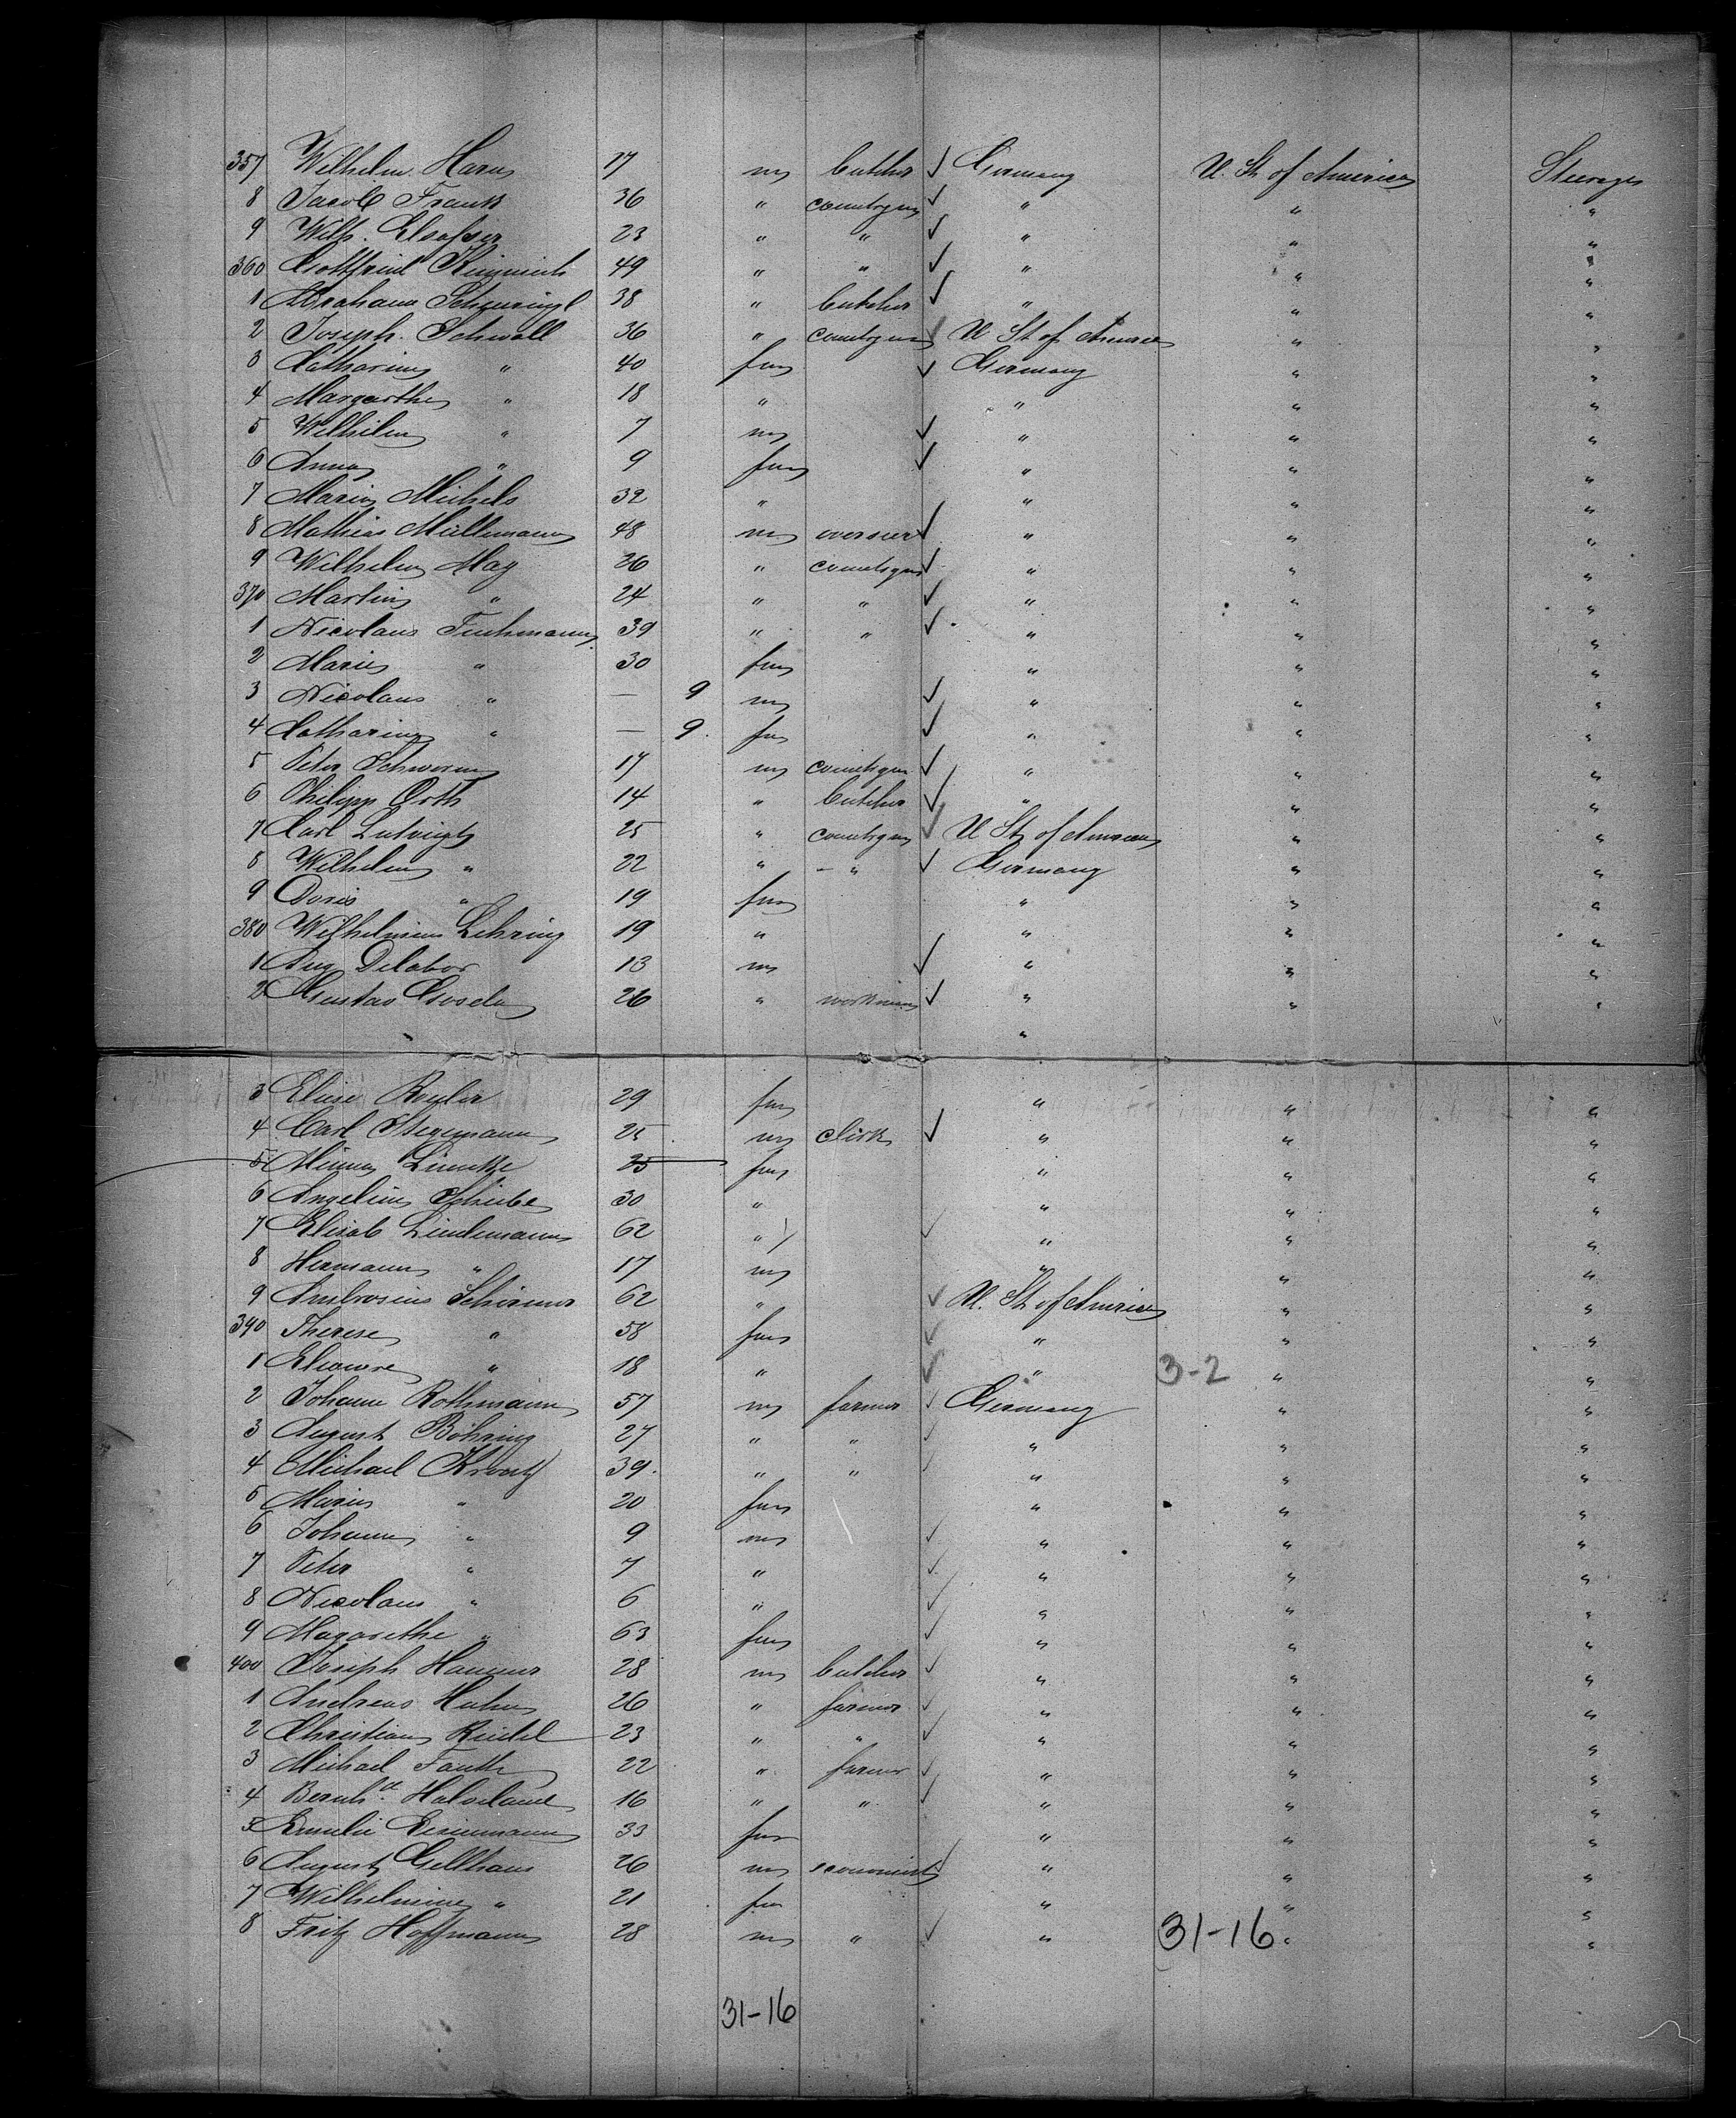 357 Wilhelm Harn 17 m butcher ✓ Germany U. St. of America Steerage
8 Jacob Frank 36 " countrym ✓ " " "
9 Wilh. Elsasser 23 " " ✓ " " "
360 Gottfried Kimmich 49 " " ✓ " " "
1 Abraham 38 " butcher ✓ " " "
2 Joseph Schwall 36 " countrym ✓ U St of America " "
3 Catharina " 40 fm ✓ Germany " "
4 Margarthe " 18 " " " "
5 Wilhelm " 7 m ✓ " " "
6 Anna " 9 fm ✓ " " "
7 Maria Michels 32 " " " "
8 Mathias Müllemann 48 m overseer ✓ " " "
9 Wilhelm May 26 " countrym ✓ " " "
370 Martin " 24 " " ✓ " " "
1 Nicolaus Fuhrmann 39 " " ✓ " " "
2 Maria " 30 fm " " "
3 Nicolaus " — 9 m ✓ " " "
4 Catharina " — 9. fm ✓ " " "
5 Peter Schwerm 17 m countrym ✓ " " "
6 Philipp Orth 14 " butcher ✓ " " "
7 Carl 25 " countrym ✓ U St of America " "
8 Wilhelm " 22 " - " ✓ Germany " "
9 Doris " 19 fm " " "
380 Wilhelmine Lehring 19 " " " "
1 Aug Delabor 13 m ✓ " " "
2 Gustav 26 " workman ✓ " " "
"
3 Elise 29 fm " " "
4 Carl Stegemann 25 m clerk ✓ " " "
5 Minna Limcke 25 fm " " "
6 Angelina Scheibe 30 " " " "
7 Elisab Lindemann 62 " ✓ " " "
8 Hermann " 17 m " " "
9 Ambrosius Schirmer 62 " ✓ U. St of America " "
390 Therese " 58 fm ✓ " " "
1 Eleonore " 18 " ✓ " 3-2 " "
2 Johann Rothmann 57 m farmer ✓ Germany " "
3 August Böhring 27 " " ✓ " " "
4 Michael 39. " " ✓ " " "
5 Maria " 20 fm " " "
6 Johann " 9 m ✓ " " "
7 Peter " 7 " ✓ " " "
8 Nicolaus " 6 " ✓ " " "
9 Magarethe " 63 fm ✓ " " "
400 Joseph Hammer 28 m butcher ✓ " " "
1 Andreas Hahn 26 " farmer ✓ " " "
2 Christian Riedel 23 " " ✓ " " "
3 Michael Fauth 22 " farmer ✓ " " "
4 Bernh.d 16 " " ✓ " " "
5 Emilie Eisenmann 33 fm " " "
6 August Gellhaus 26 m economist ✓ " " "
7 Wilhelmine " 21 fm " " "
8 Fritz Hoffmann 28 m " ✓ " 31-16 " "
31-16